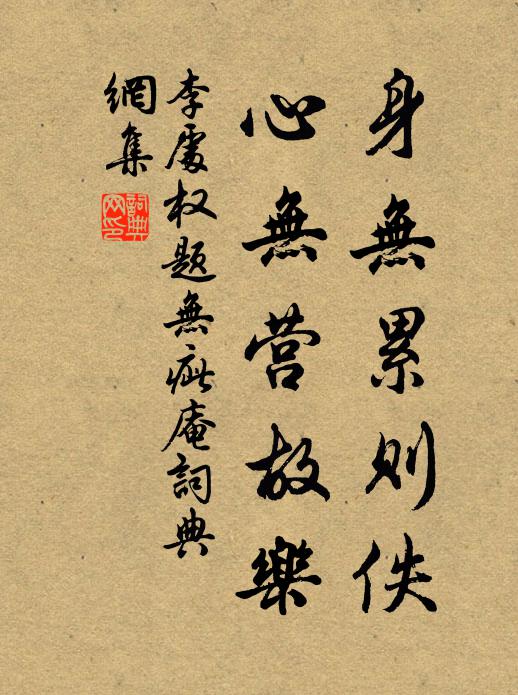 身無累則佚
心無营故樂
李處权题無疵庵詞典
網集
詞典网印